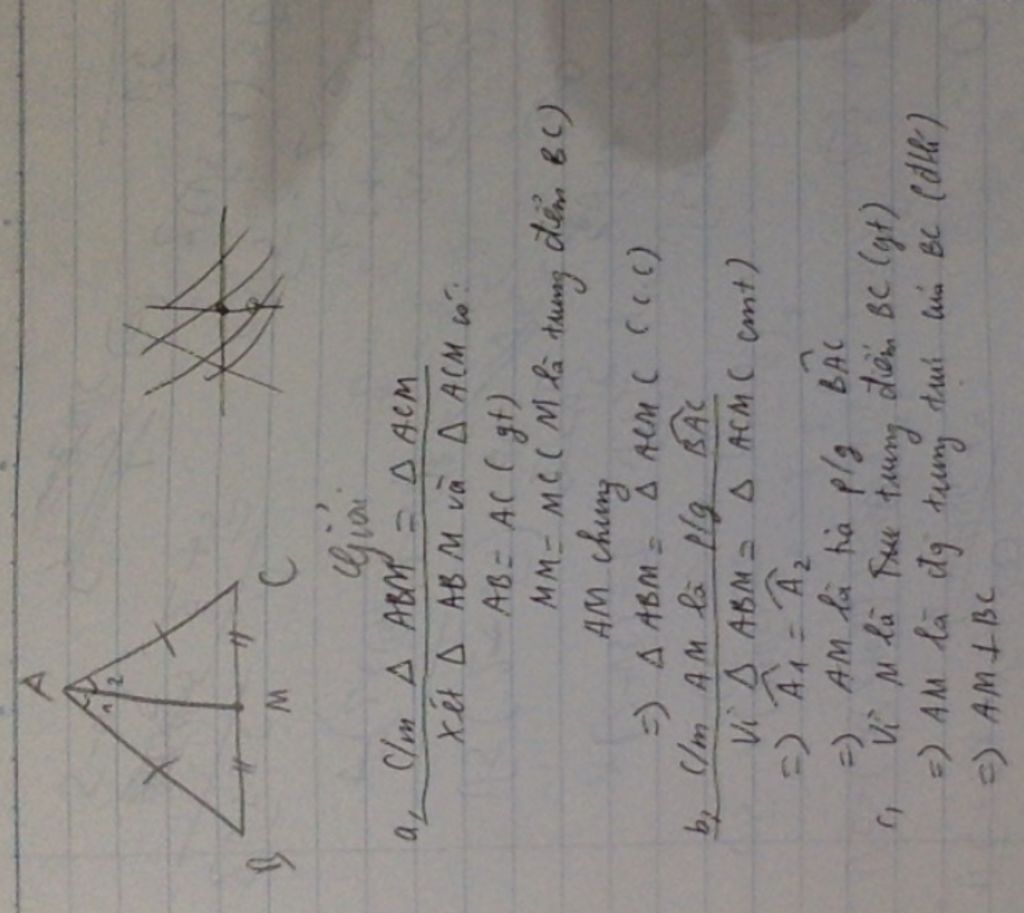 A
1 2
B
M
C
Giải
a, C/m Δ ABM = Δ ACM
Xét Δ ABM và Δ ACM có:
AB = AC (gt)
MM = MC (M là trung điểm BC)
AM chung
=) Δ ABM = Δ ACM (C.C.C)
b, C/m AM là p/g BAC
Vì Δ ABM = Δ ACM (cmt)
=) A1 = A2
=) AM là tia p/g BAC
c, Vì M là trung điểm BC (gt)
=) AM là đg trung trực của BC (đlhi)
=) AM ⊥ BC